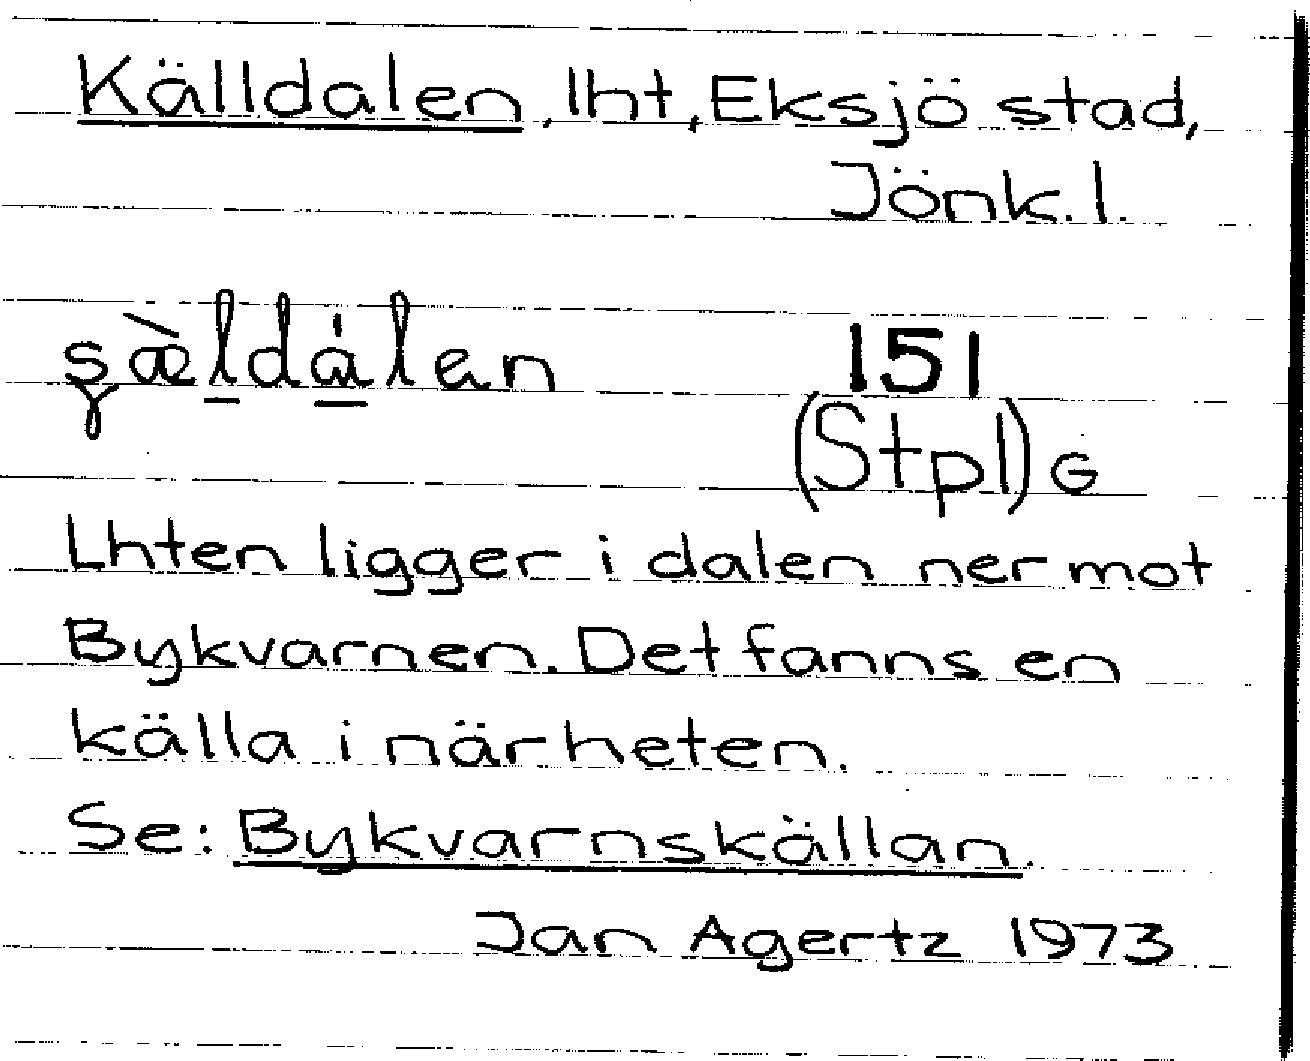 Källdalen, lht, Eksjö stad,
Jönk. l.
151
(Stpl) G
Lhten ligger i dalen ner mot
Bykvarnen. Det fanns en
källa i närheten.
Se: Bykvarnskällan.
Jan Agertz 1973